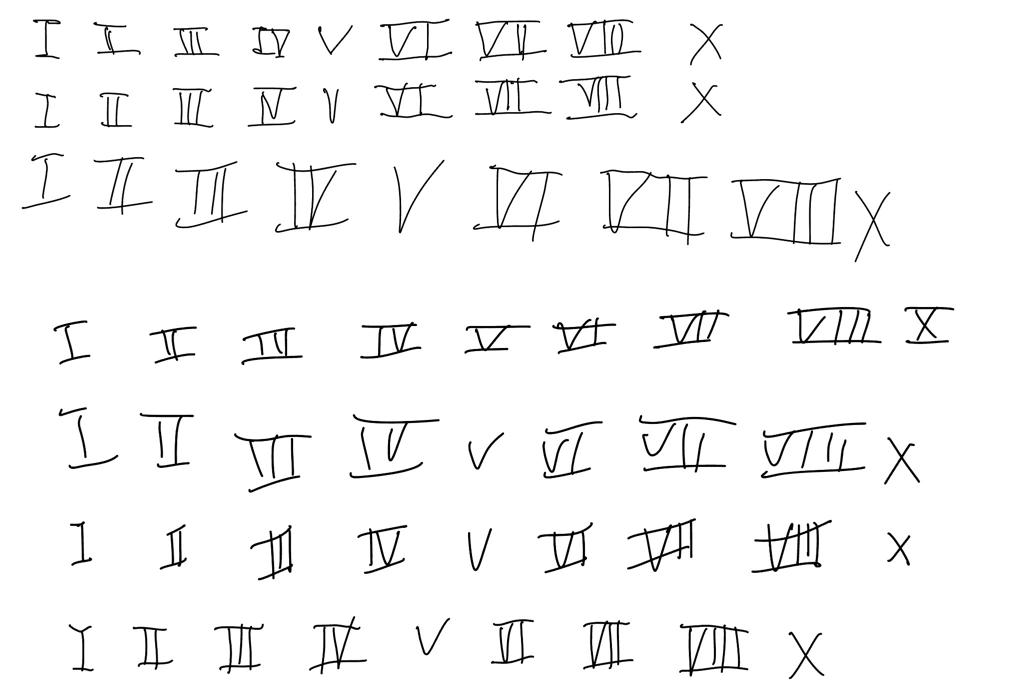 I II III IV V VI VII VIII X
I II III IV V VI VII VIII X
I II III IV V VI VII VIII X
I II III IV V VI VII VIII X
I II III IV V VI VII VIII X
I II III IV V VI VII VIII X
I II III IV V VI VII VIII X